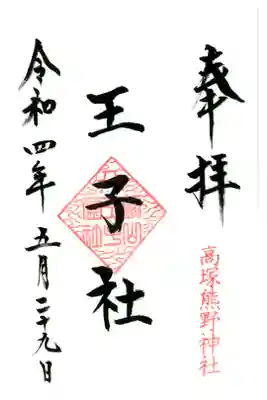 奉拝
高塚熊野神社
王子社
令和四年五月二十九日